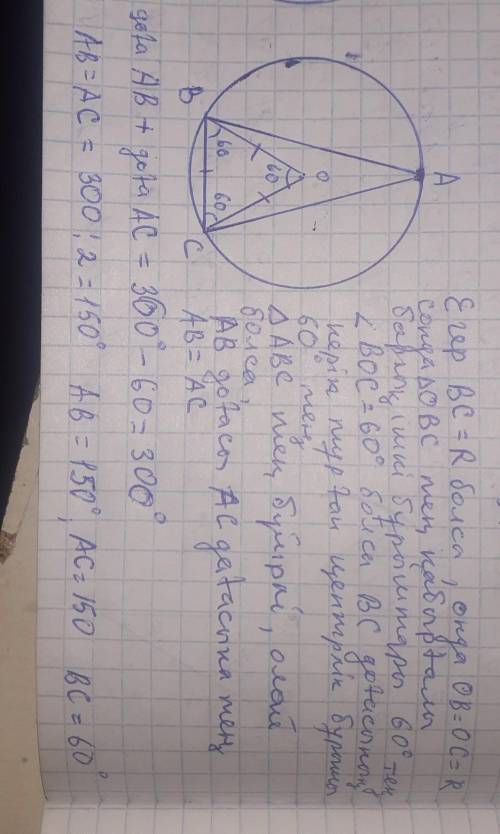 A
B
C
O
60
60
60
Егер BC = R болса, онда OB = OC = R
сонда △OBC тең қабырғалы
барлық ішкі бұрыштары 60° тең
∠ BOC = 60° болса BC доғасының
керіп тұрған центрлік бұрышы
60° тең
△ ABC тең бүйірлі, олай
болса,
AB доғасы AC доғасына тең
AB = AC
доға AB + доға AC = 360° - 60 = 300°
AB = AC = 300 : 2 = 150° AB = 150°, AC = 150 BC = 60°